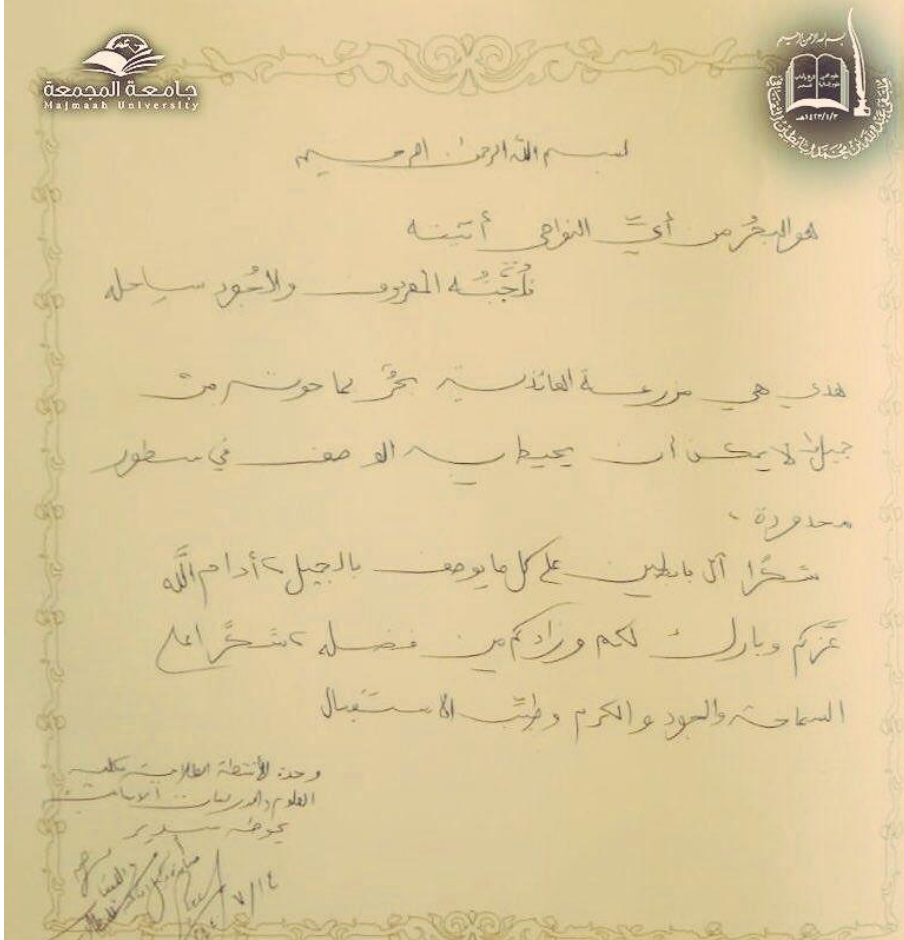 جامعة المجمعة
Majmaah University
بسم الله الرحمن الرحيم
١٤٢٣/١/٢هـ
بسم الله الرحمن الرحيم
هو البحرُ من أيِّ النواحي أتيته
فلُجَّتُه المعروف والجُود ساحله
هذي هي مزرعة العاذرية بحرٌ بما حوته من
جمالٍ لا يمكن أن يحيط به الوصف في سطور
محدودة ،
شكرًا آل بابطين على كل ما يوصف بالجميل ، أدام الله
عزكم وبارك لكم وزادكم من فضله ، شكرًا على
السماحة والجود والكرم وطيب الاستقبال
وحدة الأنشطة الطلابية بكلية
العلوم والدراسات الإنسانية
بحوطة سدير
٧/١٤